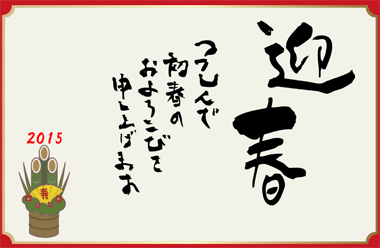 迎春
つつしんで
初春の
およろこびを
申し上げます
2015
寿